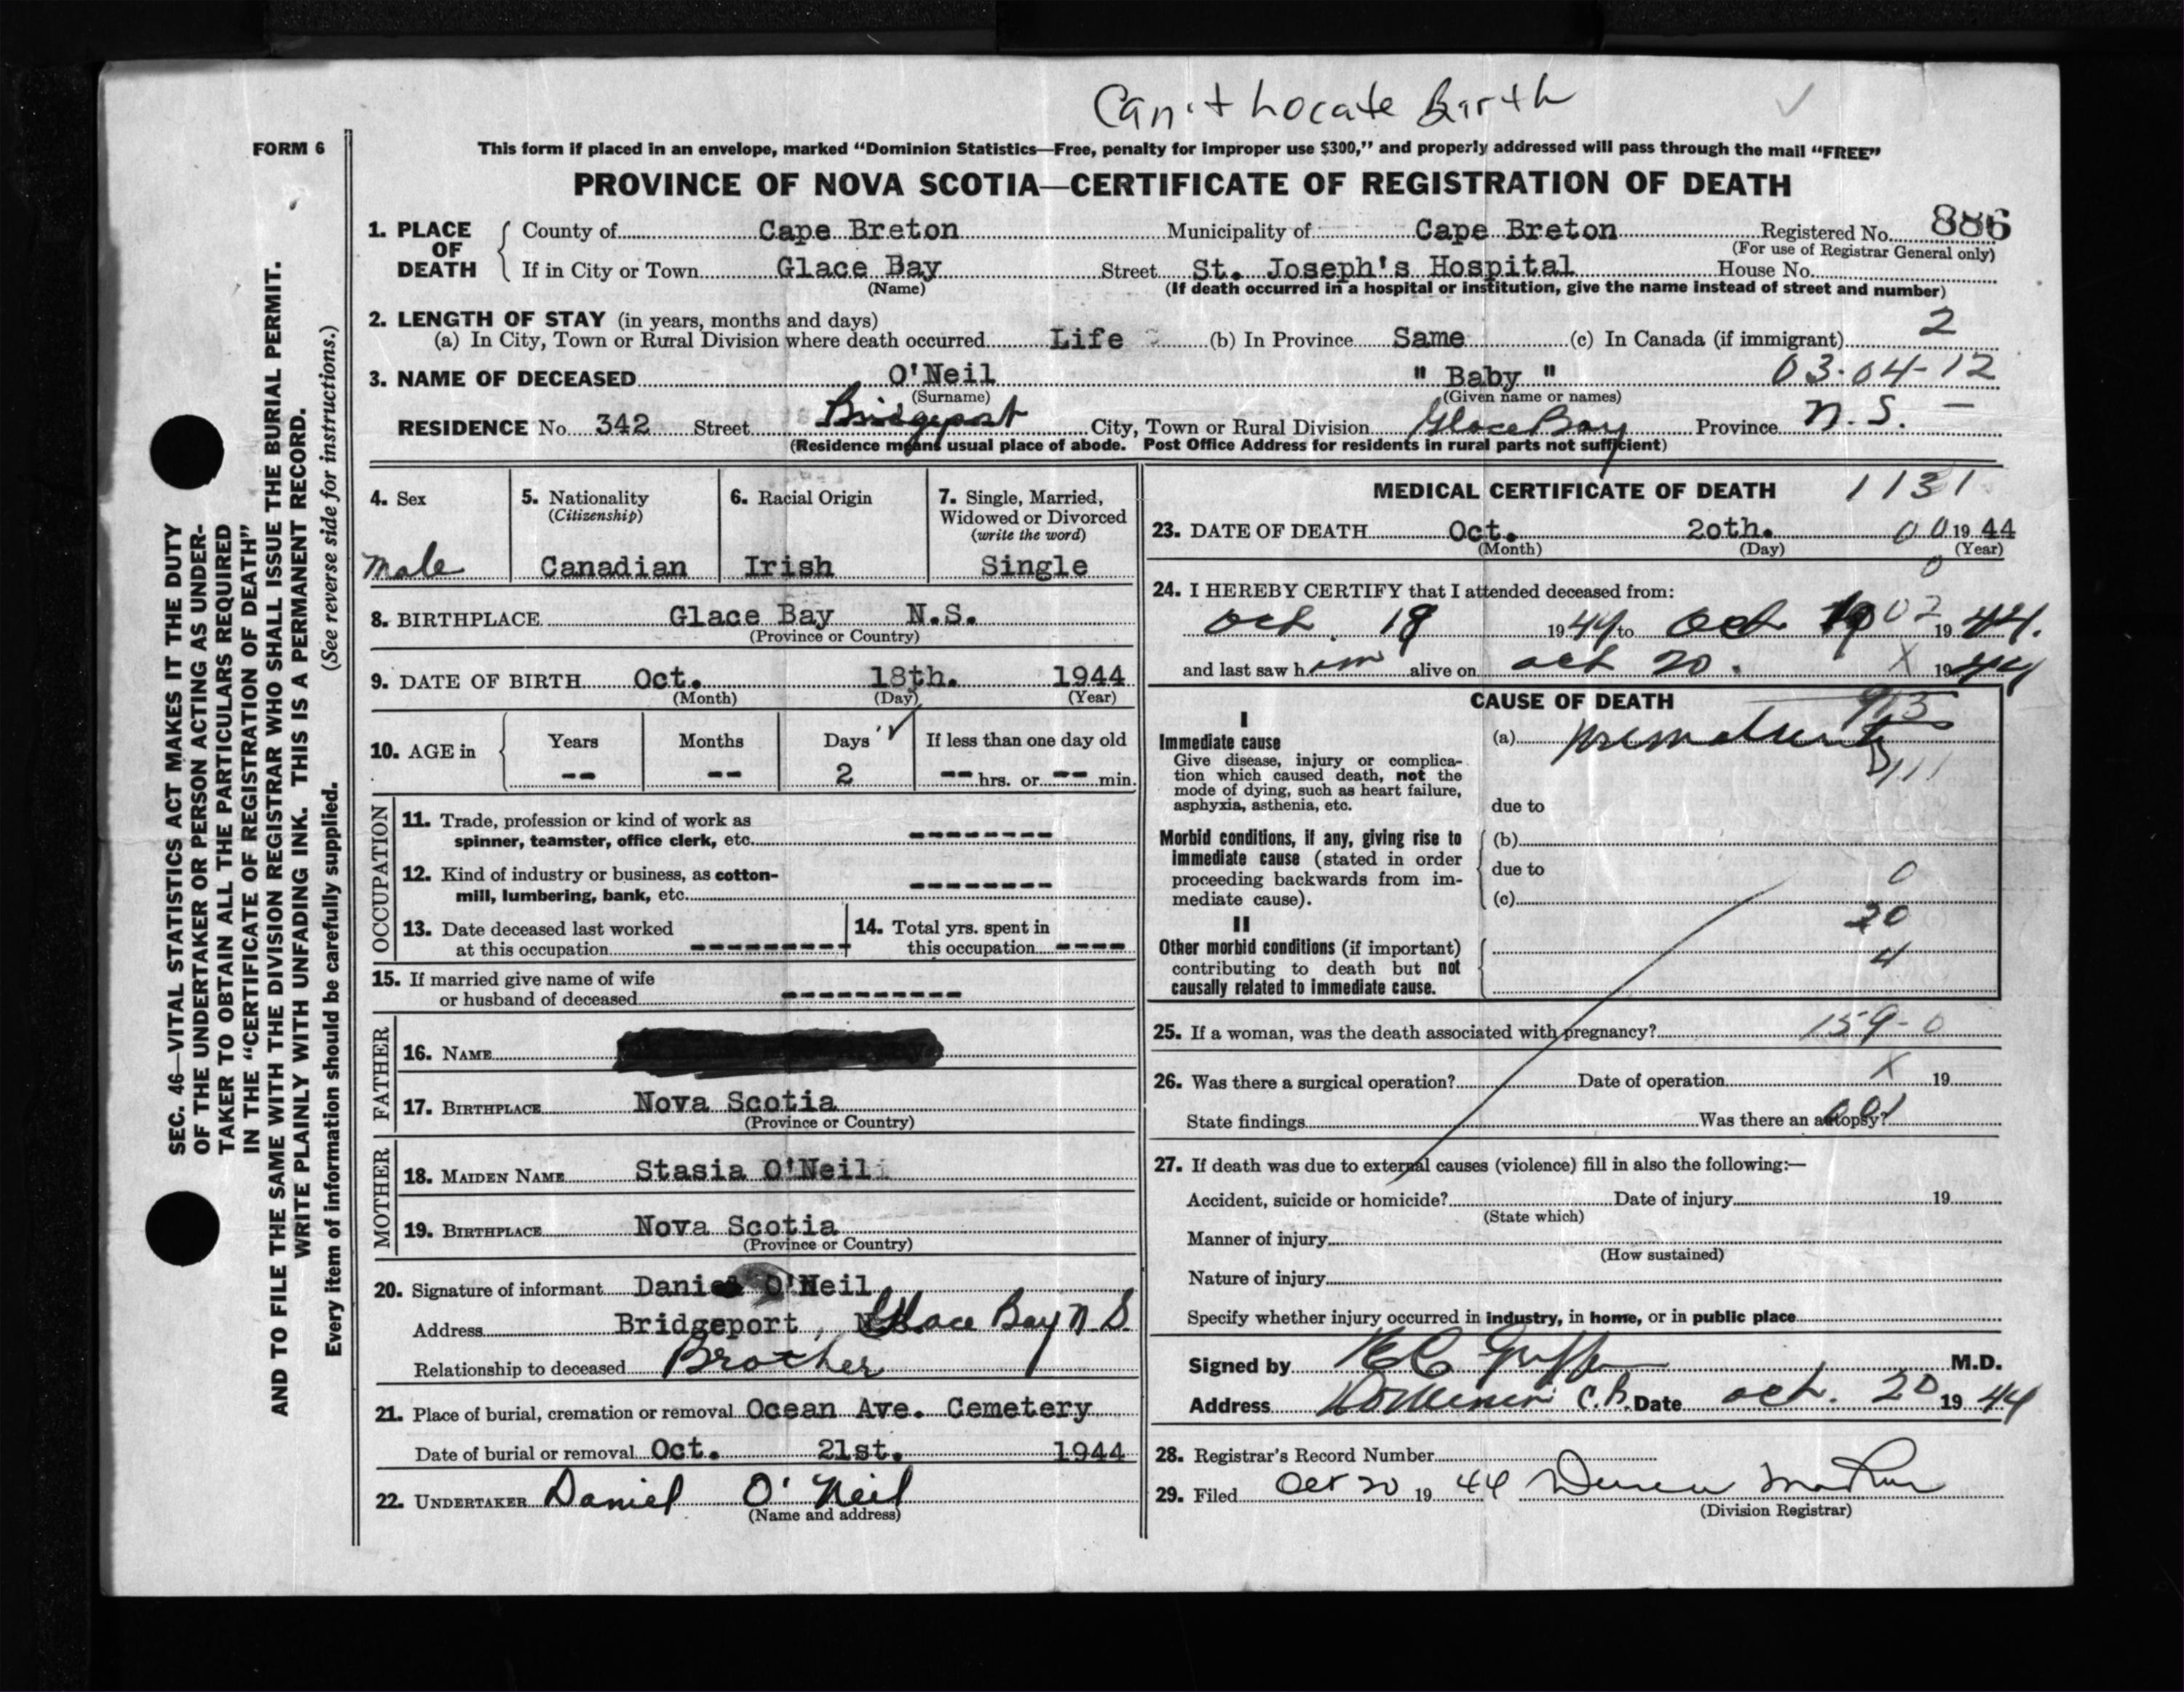 Can't Locate Birth
FORM 6
This form if placed in an envelope, marked “Dominion Statistics—Free, penalty for improper use $300,” and properly addressed will pass through the mail “FREE”
PROVINCE OF NOVA SCOTIA—CERTIFICATE OF REGISTRATION OF DEATH
SEC. 46—VITAL STATISTICS ACT MAKES IT THE DUTY
OF THE UNDERTAKER OR PERSON ACTING AS UNDER-
TAKER TO OBTAIN ALL THE PARTICULARS REQUIRED
IN THE “CERTIFICATE OF REGISTRATION OF DEATH”
AND TO FILE THE SAME WITH THE DIVISION REGISTRAR WHO SHALL ISSUE THE BURIAL PERMIT.
WRITE PLAINLY WITH UNFADING INK. THIS IS A PERMANENT RECORD.
Every item of information should be carefully supplied. (See reverse side for instructions.)
1. PLACE OF DEATH County of Cape Breton Municipality of Cape Breton Registered No. 886
(For use of Registrar General only)
If in City or Town Glace Bay Street St. Joseph's Hospital House No.
(Name) (If death occurred in a hospital or institution, give the name instead of street and number)
2. LENGTH OF STAY (in years, months and days)
(a) In City, Town or Rural Division where death occurred Life (b) In Province Same (c) In Canada (if immigrant) 2
3. NAME OF DECEASED O'Neil " Baby " 03-04-12
(Surname) (Given name or names)
RESIDENCE No. 342 Street Bridgeport City, Town or Rural Division Glace Bay Province N.S. —
(Residence means usual place of abode. Post Office Address for residents in rural parts not sufficient)
4. Sex
Male
5. Nationality
(Citizenship)
Canadian
6. Racial Origin
Irish
7. Single, Married,
Widowed or Divorced
(write the word)
Single
8. BIRTHPLACE Glace Bay N.S.
(Province or Country)
9. DATE OF BIRTH Oct. 18th. 1944
(Month) (Day) (Year)
10. AGE in Years Months Days If less than one day old
-- -- 2 -- hrs. or -- min.
OCCUPATION
11. Trade, profession or kind of work as
spinner, teamster, office clerk, etc. --------
12. Kind of industry or business, as cotton-
mill, lumbering, bank, etc. --------
13. Date deceased last worked
at this occupation ---------
14. Total yrs. spent in
this occupation ----
15. If married give name of wife
or husband of deceased ----------
FATHER
16. NAME
17. BIRTHPLACE Nova Scotia
(Province or Country)
MOTHER
18. MAIDEN NAME Stasia O'Neil
19. BIRTHPLACE Nova Scotia
(Province or Country)
20. Signature of informant Daniel O'Neil
Address Bridgeport, Glace Bay N S.
Relationship to deceased Brother
21. Place of burial, cremation or removal Ocean Ave. Cemetery
Date of burial or removal Oct. 21st. 1944
22. UNDERTAKER Daniel O'Neil
(Name and address)
MEDICAL CERTIFICATE OF DEATH 1131
23. DATE OF DEATH Oct. 20th. 00 1944
(Month) (Day) (Year)
0
24. I HEREBY CERTIFY that I attended deceased from:
Oct. 18 1944 to Oct 02 1944.
and last saw him alive on Oct 20. X 1944
CAUSE OF DEATH
I
Immediate cause
Give disease, injury or complica-
tion which caused death, not the
mode of dying, such as heart failure,
asphyxia, asthenia, etc.
(a) Prematurity
due to
Morbid conditions, if any, giving rise to
immediate cause (stated in order
proceeding backwards from im-
mediate cause).
(b)
due to
(c) 0
20
4
II
Other morbid conditions (if important)
contributing to death but not
causally related to immediate cause.
25. If a woman, was the death associated with pregnancy? 159-0
26. Was there a surgical operation? Date of operation X 19
State findings Was there an autopsy? 001
27. If death was due to external causes (violence) fill in also the following:—
Accident, suicide or homicide? Date of injury 19
(State which)
Manner of injury
(How sustained)
Nature of injury
Specify whether injury occurred in industry, in home, or in public place
Signed by M.D.
Address Dominion C.B. Date Oct. 20 1944
28. Registrar's Record Number
29. Filed Oct 20 19 44
(Division Registrar)